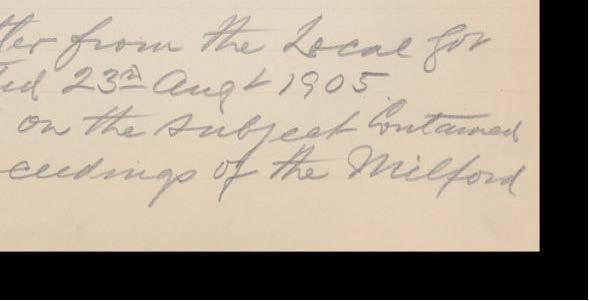 tter from the Local Gov
ted 23rd Augt 1905
on the subject Contained
ceedings of the Milford